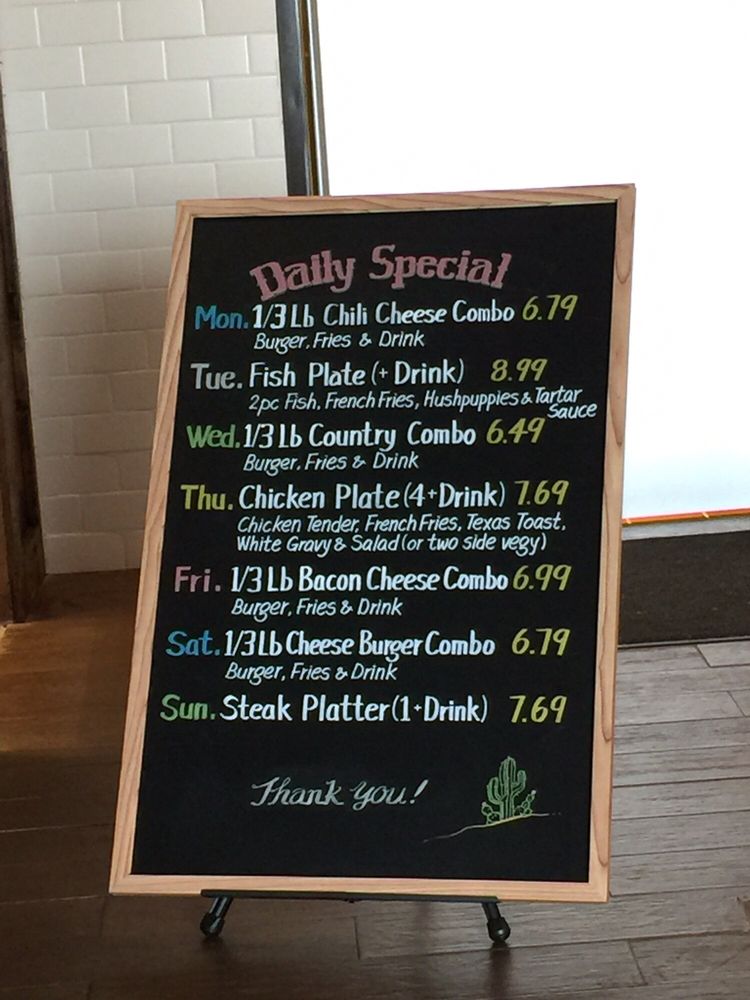 Daily Special
Mon. 1/3 Lb Chili Cheese Combo 6.79
Burger, Fries & Drink
Tue. Fish Plate (+ Drink) 8.99
2pc Fish, French Fries, Hushpuppies & Tartar
Sauce
Wed. 1/3 Lb Country Combo 6.49
Burger, Fries & Drink
Thu. Chicken Plate (4+Drink) 7.69
Chicken Tender, French Fries, Texas Toast,
White Gravy & Salad (or two side vegy)
Fri. 1/3 Lb Bacon Cheese Combo 6.99
Burger, Fries & Drink
Sat. 1/3 Lb Cheese Burger Combo 6.79
Burger, Fries & Drink
Sun. Steak Platter (1+Drink) 7.69
Thank you!